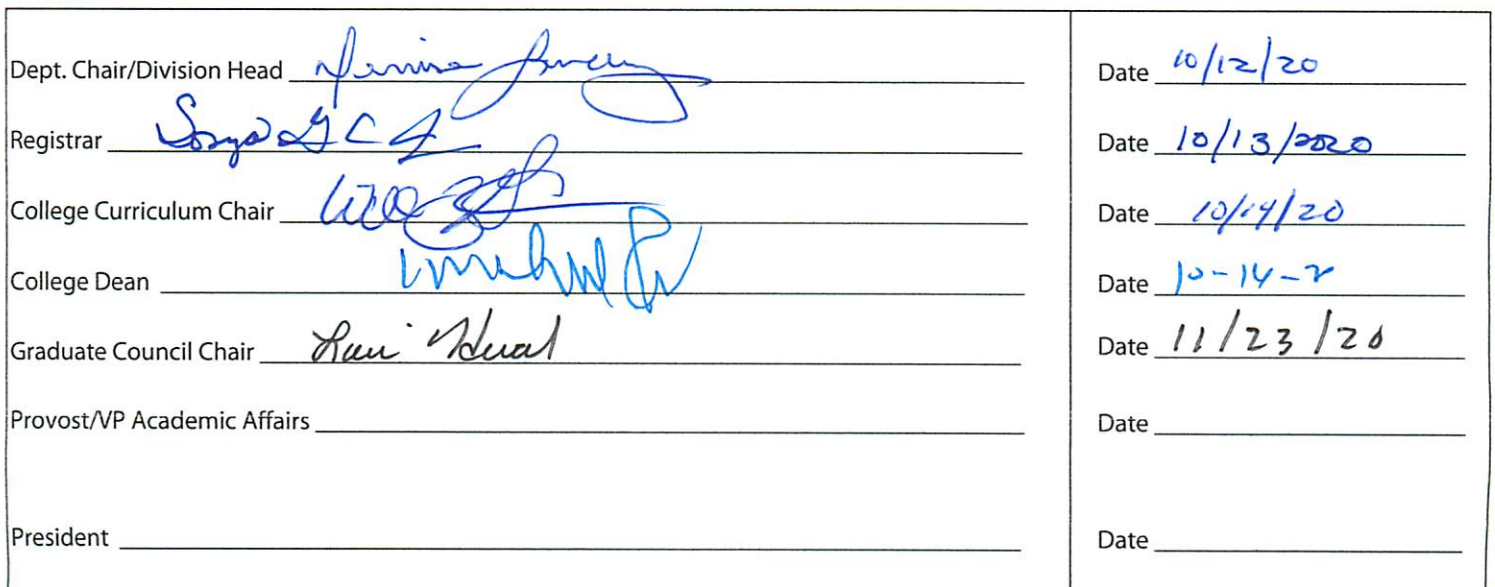 Dept. Chair/Division Head Date 10/12/20
Registrar Date 10/13/2020
College Curriculum Chair Date 10/14/20
College Dean Date 10-14-2
Graduate Council Chair Date 11/23/20
Provost/VP Academic Affairs Date
President Date